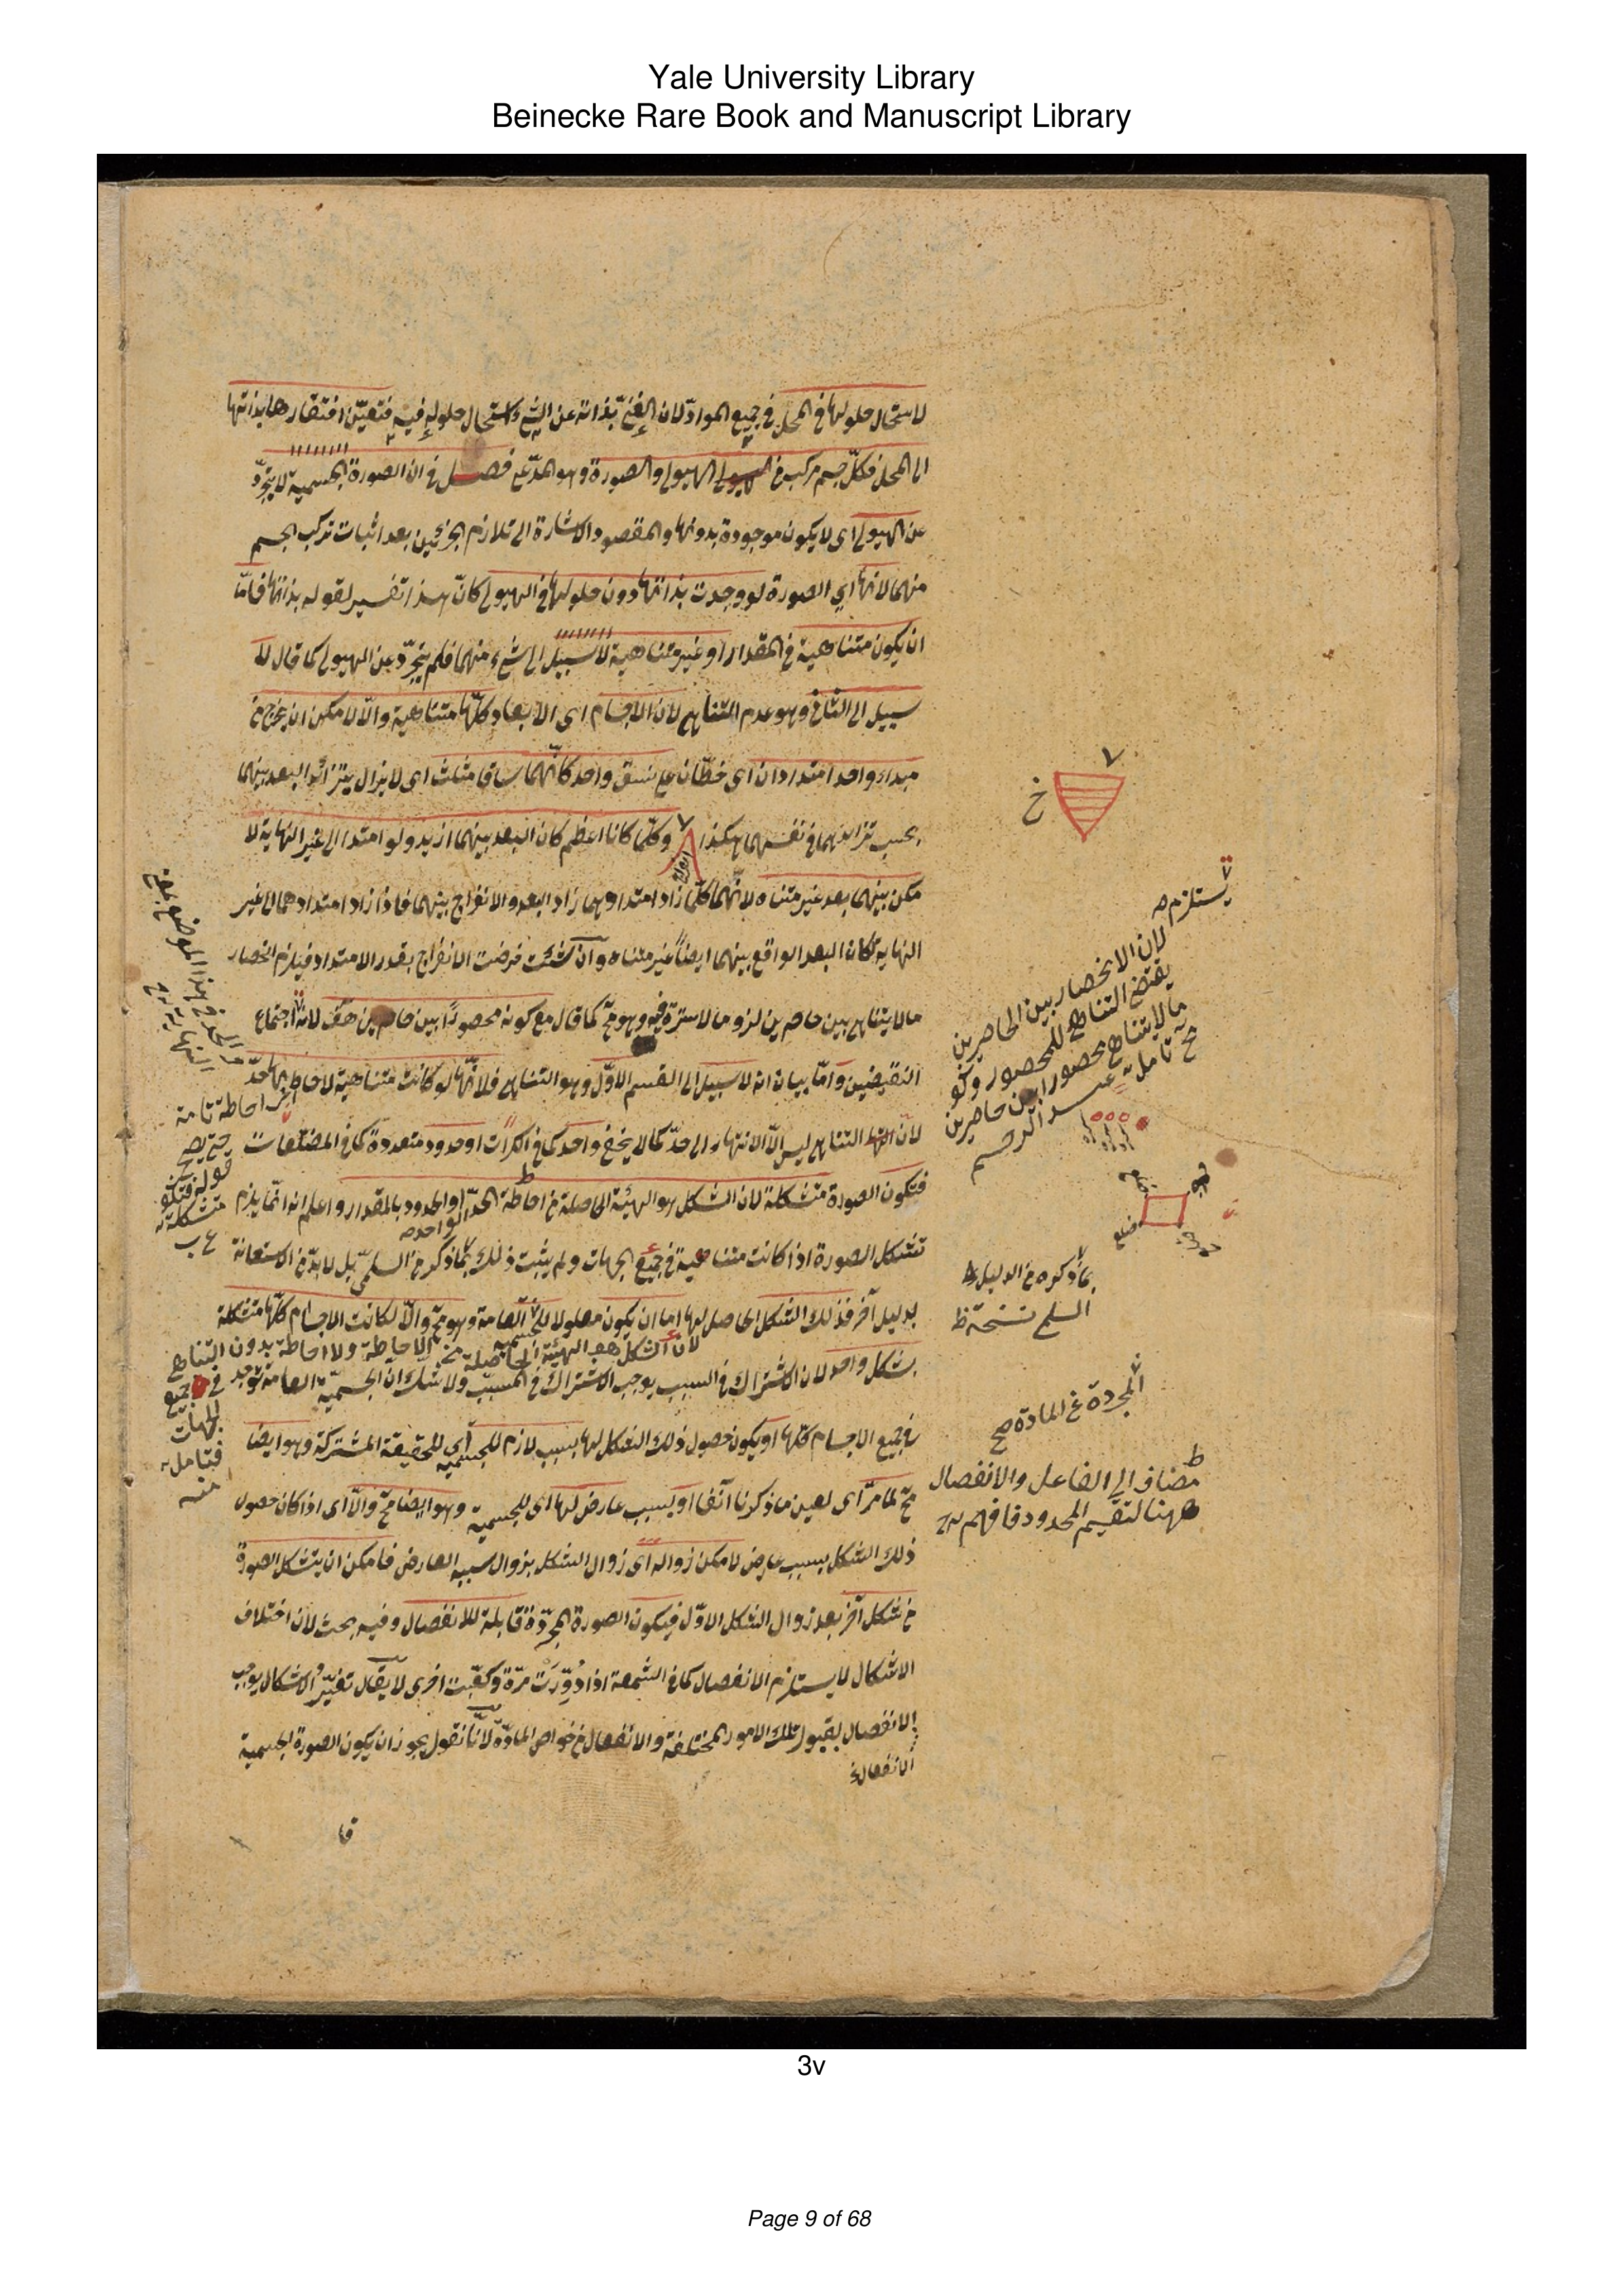 Yale University Library
Beinecke Rare Book and Manuscript Library
لاستحال حلولها في المحل في جميع المواد لان الغني بذاته عن الشئ استحال حلوله فيه فتعين افتقارها بذاتها
الى المحل فكل جسم مركب من الهيولى والصورة وهو المدعى فصل في ان الصورة الجسمية لا يتجرد
عن الهيولى اى لا يكون موجودة بدونها والمقصود الاشارة الى تلازم الجزئين بعد اثبات تركب الجسم
منهما لانها اي الصورة لو وجدت بذاتها دون حلولها في الهيولى كان هذا تفسير لقوله بذاتها فاما
ان يكون متناهية في المقدار او غير متناهية لا سبيل الى شئ منهما فلم يتجرد عن الهيولى كما قال لا
سبيل الى الثاني وهو عدم التناهي لان الاجسام اى الابعاد كلها متناهية والا لامكن ان يخرج من
مبداء واحد امتدادان اى خطان على نسق واحد كانهما ساقا مثلث اى لا يزال يتزائد البعد بينهما
بحسب تزايدهما في نفسهما هكذا وكلما كانا اعظم كان البعد بينهما ازيد ولو امتدا الى غير النهاية لا
مكن بينهما بعد غير متناه لانهما كلما زاد امتدادهما زاد البعد والانفراج بينهما فاذا زاد امتدادهما الى غير
النهاية لكان البعد الواقع بينهما ايضا غير متناه وان شئت فرضت الانفراج بقدر الامتداد فيلزم انحصار
ما لا يتناهى بين حاصرين لزوما لا سترة فيه وهو مح كما قال مع كونه محصورا بين حاصرين هف لانه اجتماع
النقيضين واما بيان انه لا سبيل الى القسم الاول وهو التناهي فلانها لو كانت متناهية لاحاط بها حد
لان التناهي ليس الا الانتهاء الى حد كما لا يخفى واحد كما في الكرات او حدود متعددة كما في المضلعات
فتكون الصورة متشكلة لان الشكل هو الهيئة الحاصلة من احاطة الحد او الحدود بالمقدار واعلم انه انما يلزم
الواحد صح
تشكل الصورة اذا كانت متناهية في جميع الجهات ولم يثبت ذلك بما ذكر من السلمي بل لا بد من الاستعانة
بدليل آخر فذلك الشكل الحاصل لها اما ان يكون معلولا للجسمية العامة وهو مح والا لكانت الاجسام كلها متشكلة
بشكل واحد لان الاشتراك في السبب يوجب الاشتراك في المسبب ولا شك ان الجسمية العامة توجد
في جميع الاجسام كلها او يكون حصول ذلك الشكل لها بسبب لازم للجسمية اي للحقيقة المشتركة وهو ايضا
مح لما مر اى بعين ما ذكرنا آنفا او بسبب عارض لها اى للجسمية وهو ايضا مح والا اى اذا كان حصول
ذلك الشكل بسبب عارض لامكن زواله اى زوال الشكل بزوال سببه العارض فامكن ان يتشكل الصورة
من شكل آخر بعد زوال الشكل الاول فيكون الصورة المجردة قابلة للانفصال وفيه بحث لان اختلاف
الاشكال لا يستلزم الانفصال كما في الشمعة اذا دورت مرة وكعبت اخرى لا يقال تغير الاشكال يوجب
الانفصال بقبول تلك الامور المختلفة والانفعال من خواص المادة لانا نقول يجوز ان يكون الصورة الجسمية
الانفعال
قا
خ
يستلزم صح
لان الانحصار بين الحاصرين
يقتضى التناهي للمحصور وكو
ما لا يتناهى محصورا بين حاصرين
مح تامل عبد الرحيم
ضلع
بما ذكره من الدليل
السلم نسخة ظ
المجردة عن المادة صح
مضاف الى الفاعل والانفصال
ههنا لتقسيم المحدود فافهم
احاطة تامة
قوله فتكو
متشكلة
لان الشكل هو الهيئة الحاصلة من الاحاطة ولا احاطة بدون التناهي
في جميع
الجهات
فتامل
منه
3v
Page 9 of 68